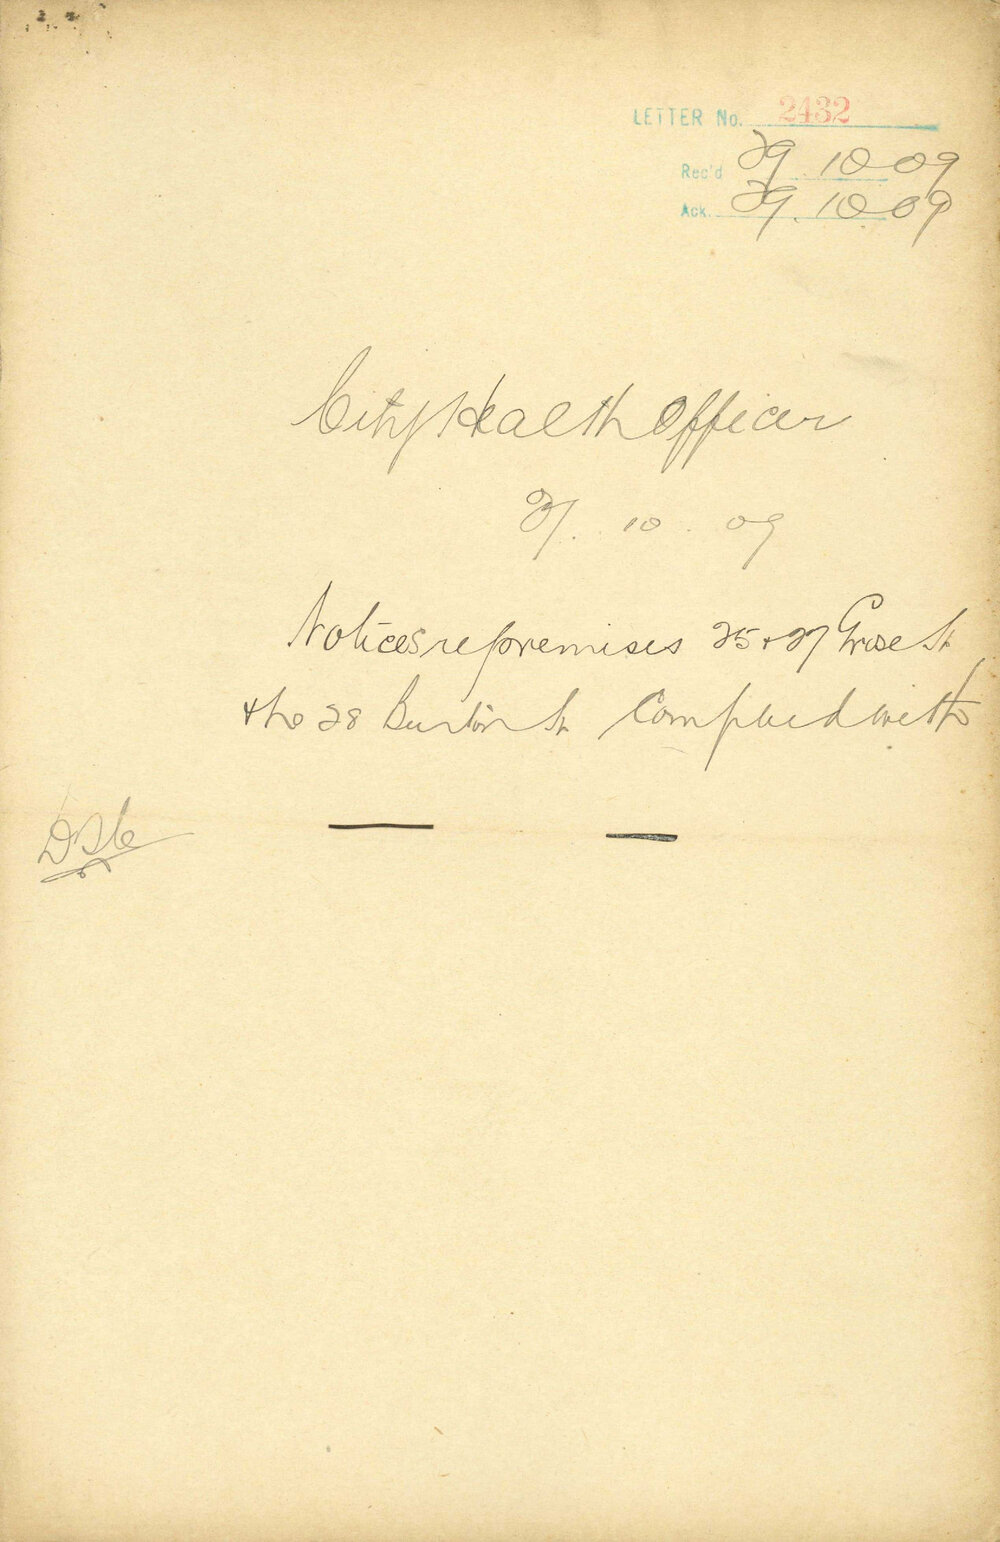 LETTER No. 2432
Rec'd 29.10.09
Ack. 29.10.09
City Health Officer
27.10.09
Notices re premises 25 + 27 Grose St
+ No 28 Burton St Complied with